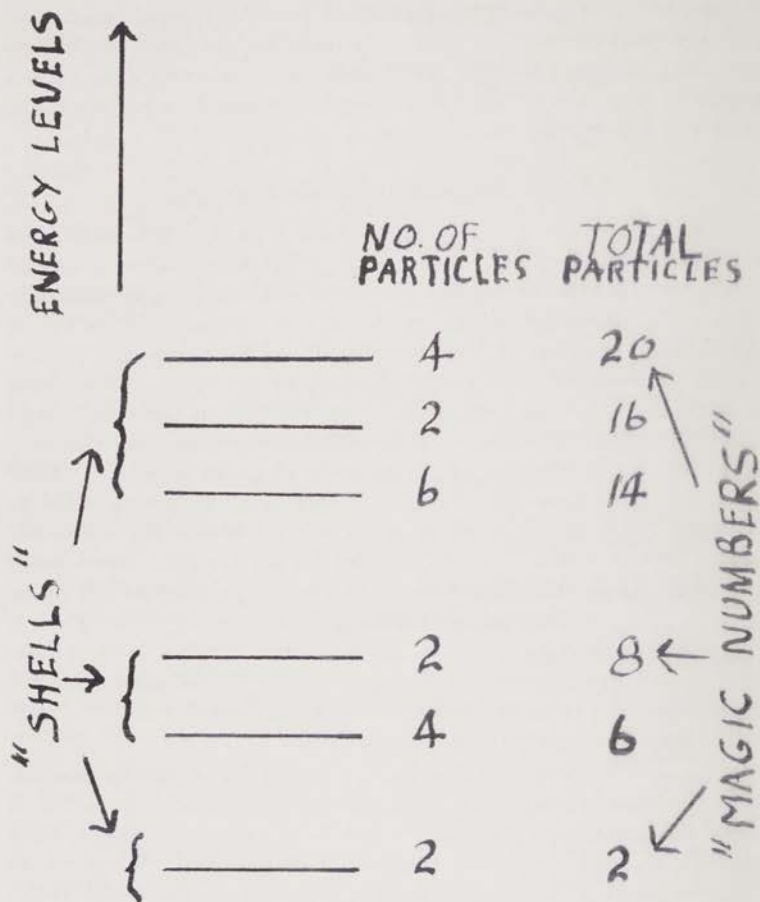 ENERGY LEVELS
NO. OF PARTICLES
TOTAL PARTICLES
4 20
2 16
6 14
2 8
4 6
2 2
"SHELLS"
"MAGIC NUMBERS"